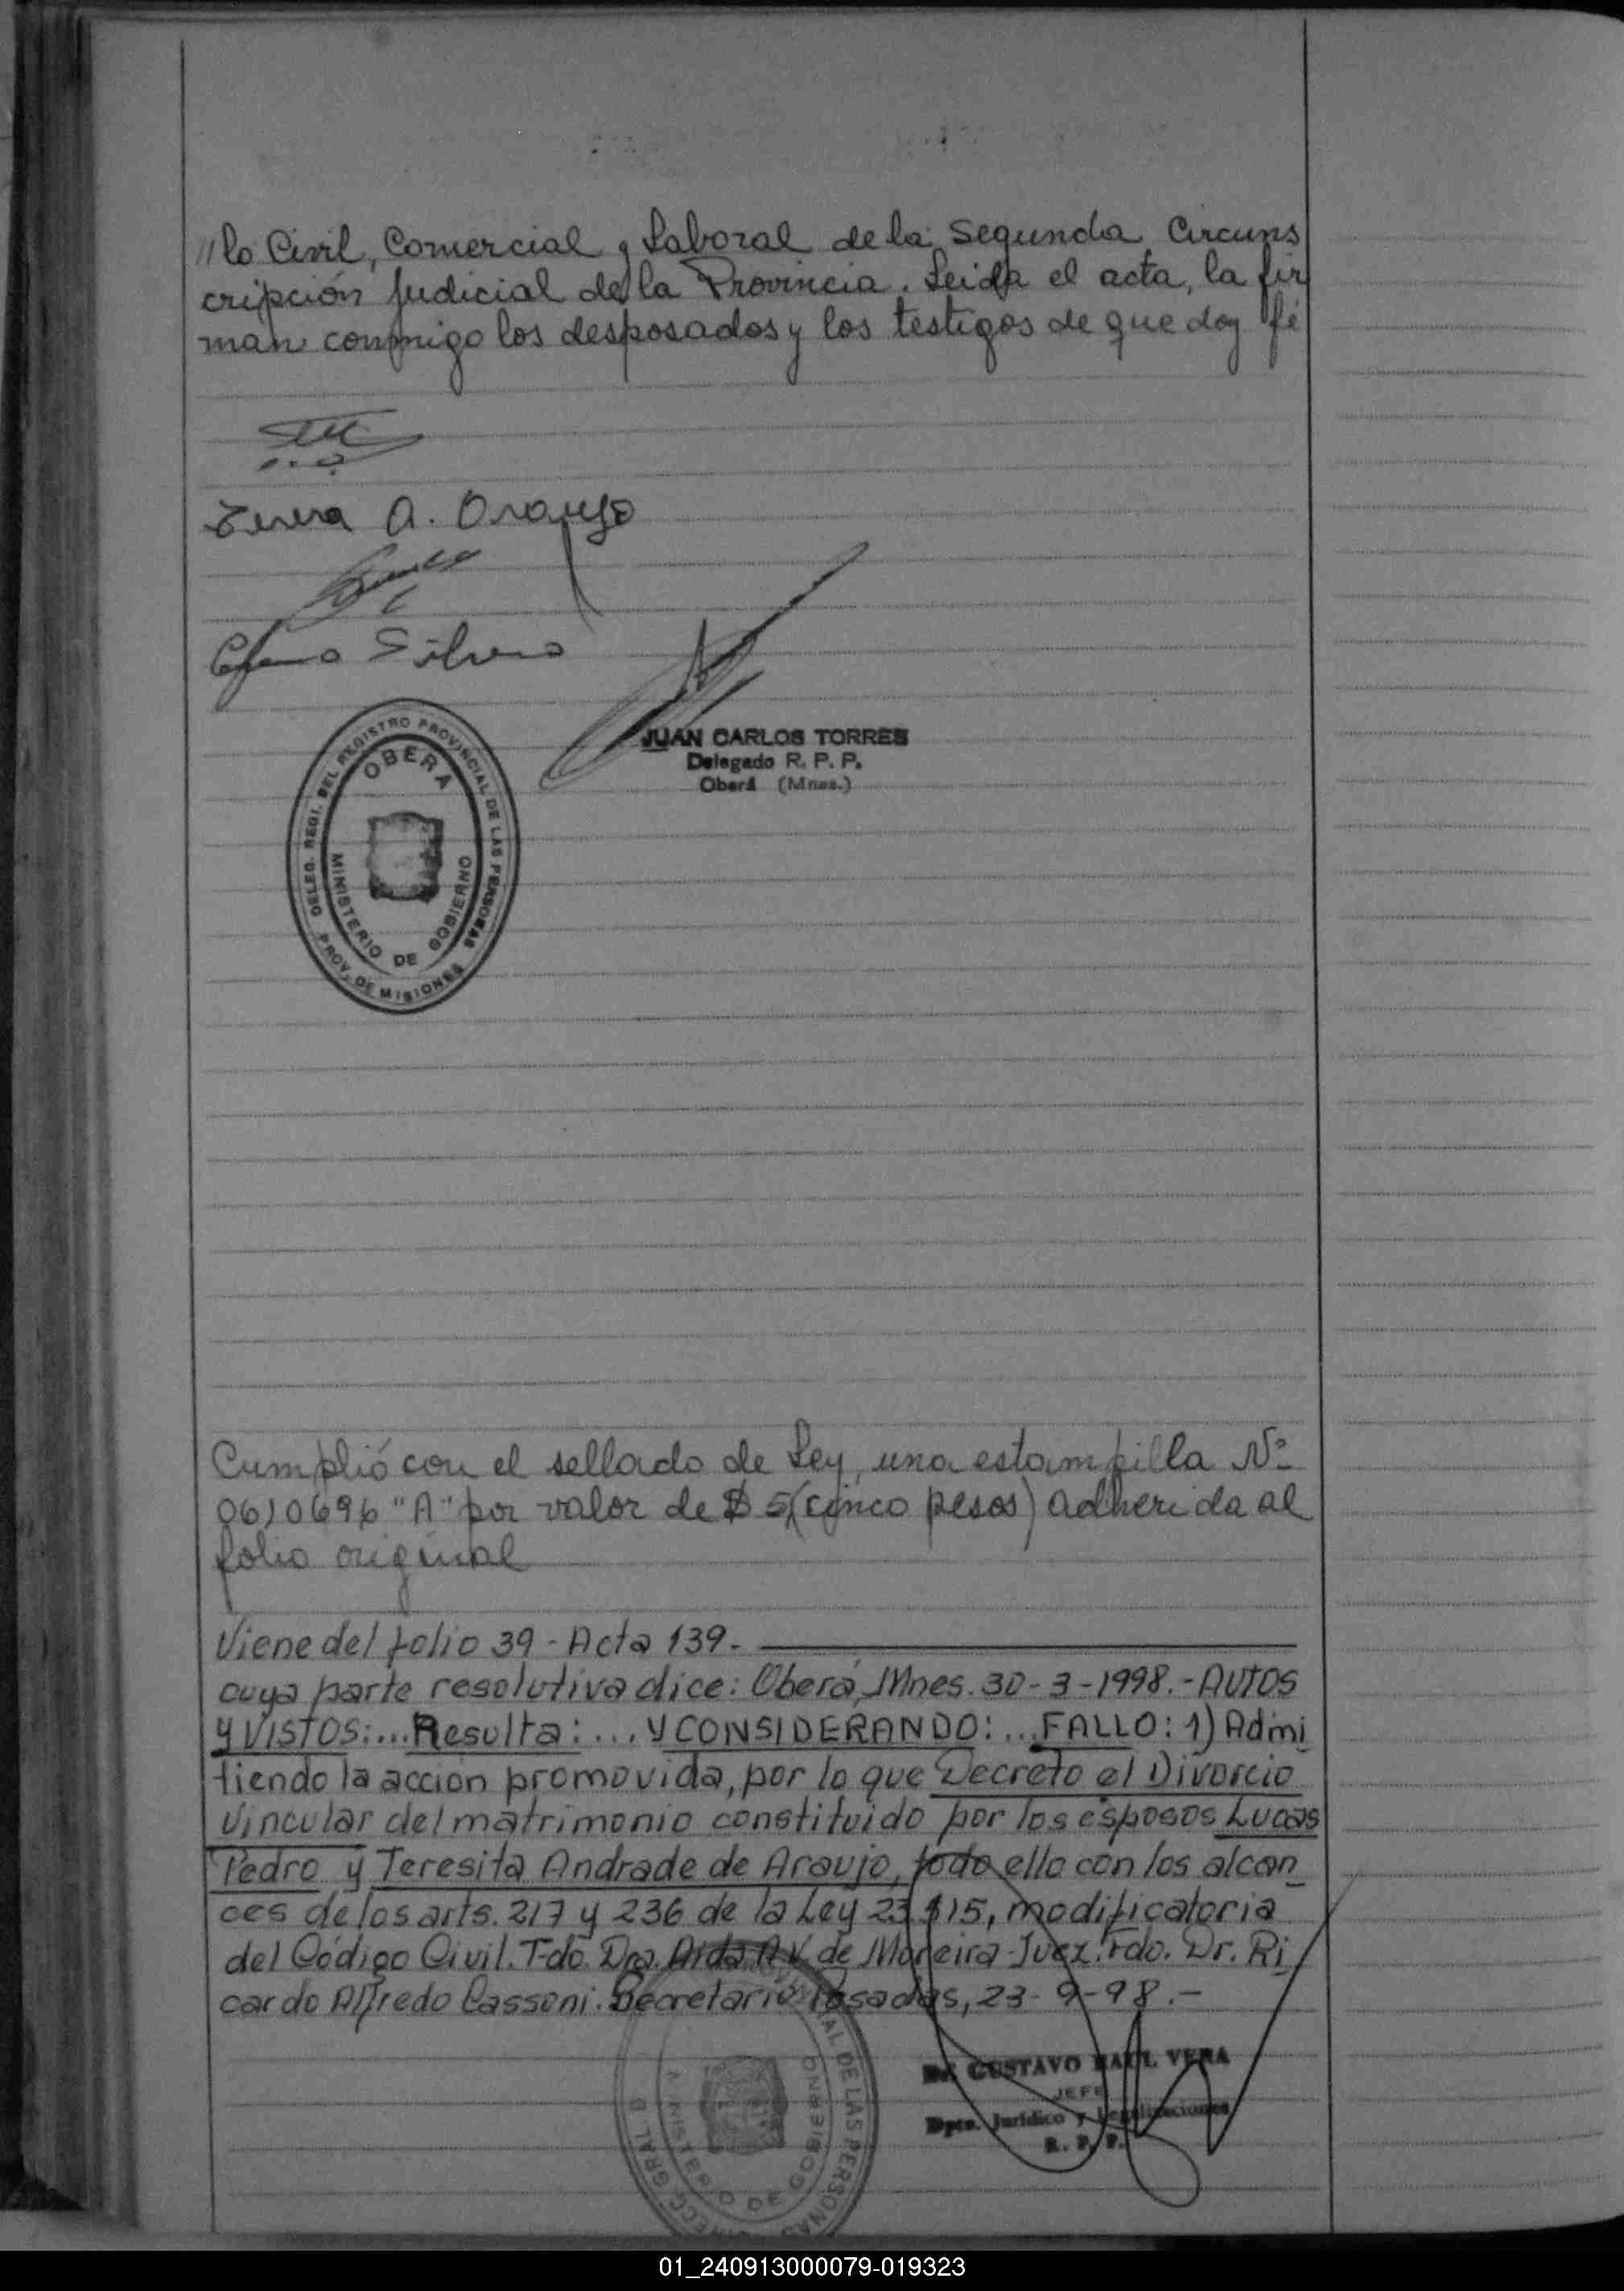 //lo Civil, Comercial y Laboral de la Segunda Circuns
cripción Judicial de la Provincia. Leida el acta, la fir
man conmigo los desposados y los testigos de que doy fé
A. Araujo
Silvero
DELEG. REGI. DEL REGISTRO PROVINCIAL DE LAS PERSONAS
OBERA
MINISTERIO DE GOBIERNO
PROV. DE MISIONES
JUAN CARLOS TORRES
Delegado R. P. P.
Oberá (Mnes.)
Cumplió con el sellado de Ley, una estampilla Nº
0610696 "A" por valor de $ 5 (cinco pesos) adherida al
folio original
Viene del folio 39 - Acta 139.-
cuya parte resolutiva dice: Oberá, Mnes. 30-3-1998.- AUTOS
Y VISTOS:... Resulta:... Y CONSIDERANDO:... FALLO: 1) Admi
tiendo la acción promovida, por lo que Decreto el Divorcio
Vincular del matrimonio constituido por los esposos Lucas
Pedro y Teresita Andrade de Araujo, todo ello con los alcan
ces de los arts. 217 y 236 de la Ley 23.515, modificatoria
del Código Civil. Fdo. Dra. Aida A.V. de Moreira - Juez. Fdo. Dr. Ri
cardo Alfredo Cassoni. Secretario. Posadas, 23-9-98.-
AL DE LAS PERSONAS
MINISTERIO DE GOBIERNO
GRAL. D
Dr. GUSTAVO RAUL VERA
JEFE
Dpto. Jurídico y Legalizaciones
R. P. P.
01_240913000079-019323